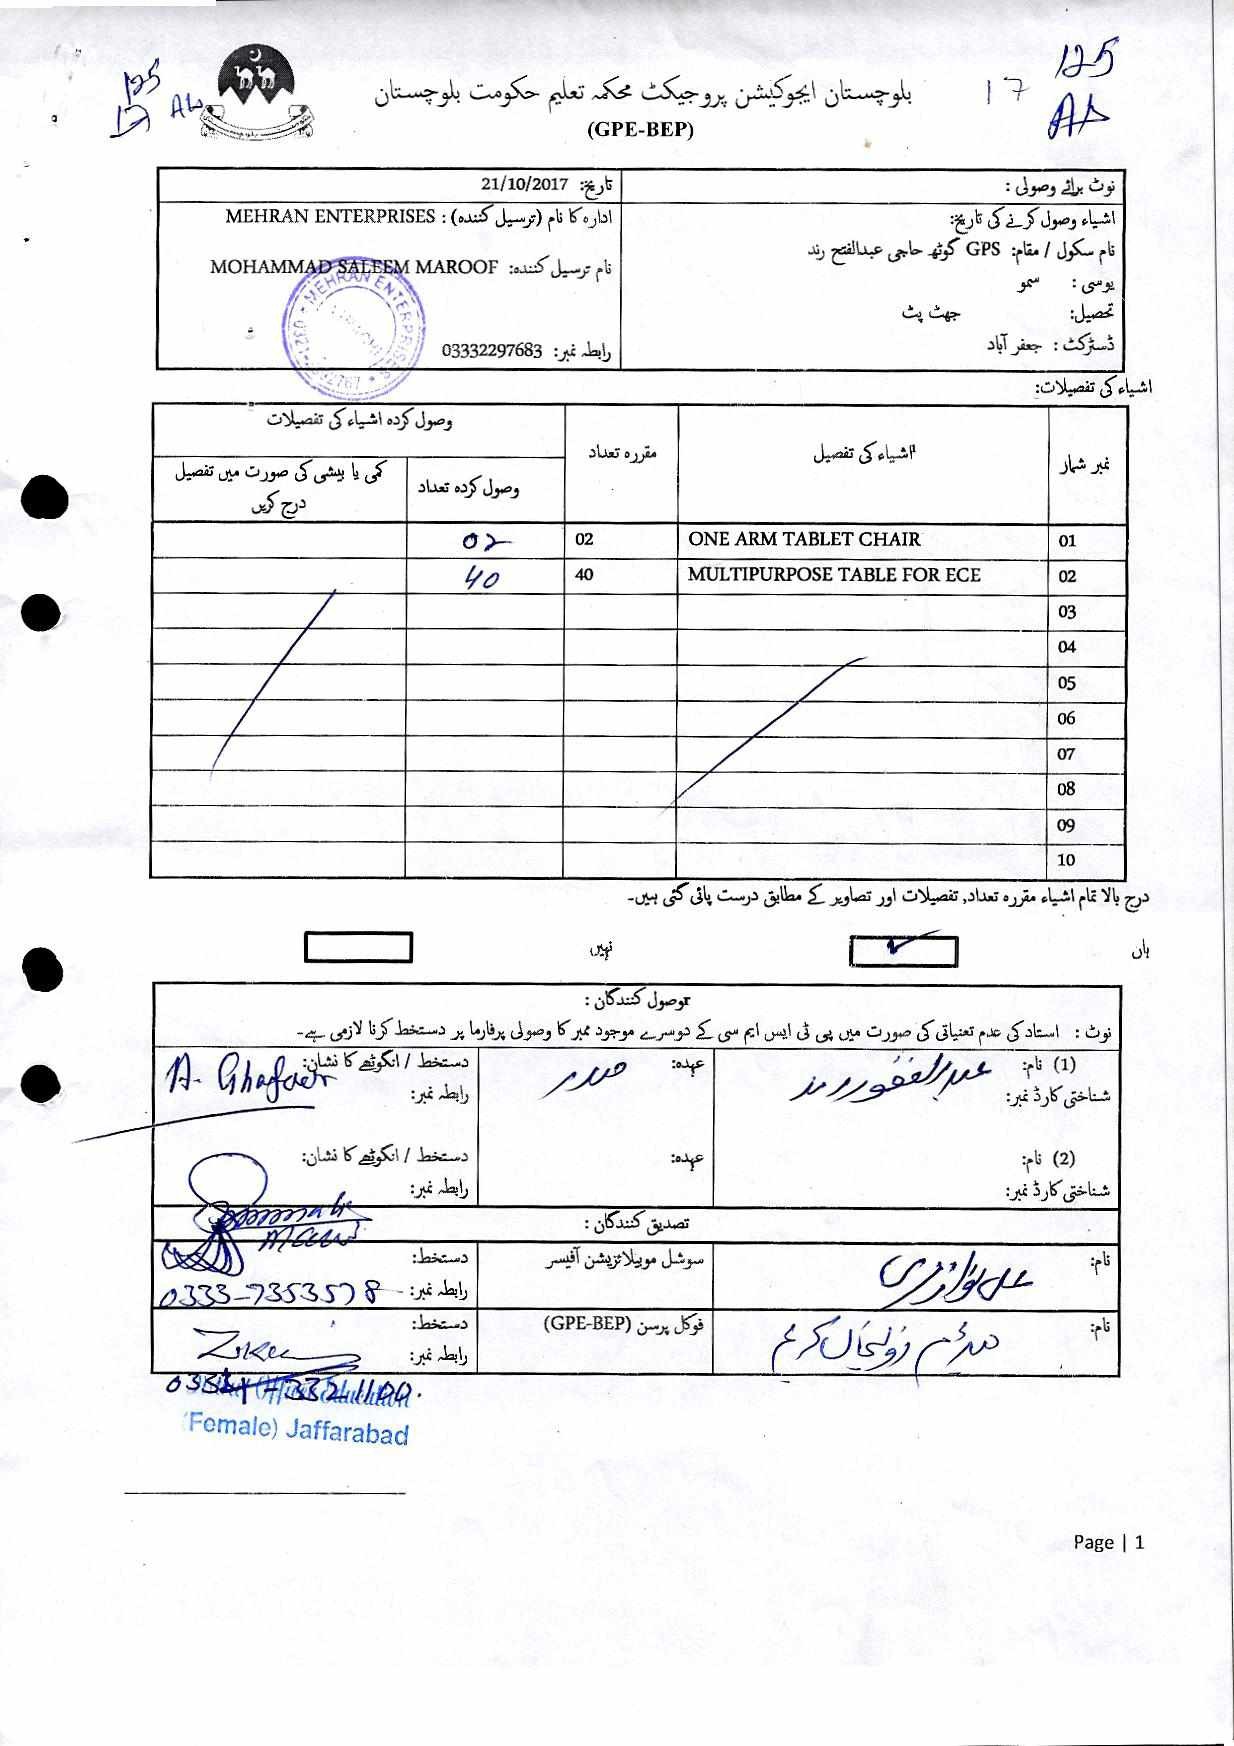 125
17
125
17
بلوچستان ایجوکیشن پروجیکٹ محکمہ تعلیم حکومت بلوچستان
(GPE-BEP)
نوٹ برائے وصولی :
تاریخ: 21/10/2017
اشیاء وصول کرنے کی تاریخ:
نام سکول / مقام: GPS گوٹھ حاجی عبدالفتح رند
یوسی : سمو
تحصیل: جھٹ پٹ
ڈسڑکٹ : جعفر آباد
ادارہ کا نام (ترسیل کنندہ) : MEHRAN ENTERPRISES
نام ترسیل کنندہ: MOHAMMAD SALEEM MAROOF
رابطہ نمبر: 03332297683
MEHRAN ENTERPRISES
اشیاء کی تفصیلات:
نمبر شمار اشیاء کی تفصیل مقررہ تعداد وصول کردہ اشیاء کی تفصیلات
وصول کردہ تعداد کمی یا بیشی کی صورت میں تفصیل درج کریں
01 ONE ARM TABLET CHAIR 02 02
02 MULTIPURPOSE TABLE FOR ECE 40 40
03
04
05
06
07
08
09
10
درج بالا تمام اشیاء مقررہ تعداد, تفصیلات اور تصاویر کے مطابق درست پائی گئی ہیں۔
ہاں نہیں
وصول کنندگان :
نوٹ : استاد کی عدم تعنیاتی کی صورت میں پی ٹی ایس ایم سی کے دوسرے موجود ممبر کا وصولی پرفارما پر دستخط کرنا لازمی ہے۔
(1) نام: عبدالغفور رند عہدہ: صدر دستخط / انگوٹھے کا نشان: A. Ghafoor
شناختی کارڈ نمبر: رابطہ نمبر:
(2) نام: عہدہ: دستخط / انگوٹھے کا نشان:
شناختی کارڈ نمبر: رابطہ نمبر:
تصدیق کنندگان :
نام: سوشل موبیلائزیشن آفیسر دستخط:
رابطہ نمبر: 0333-7353578
نام: فوکل پرسن (GPE-BEP) دستخط:
رابطہ نمبر:
Officer Education
(Female) Jaffarabad
Page | 1